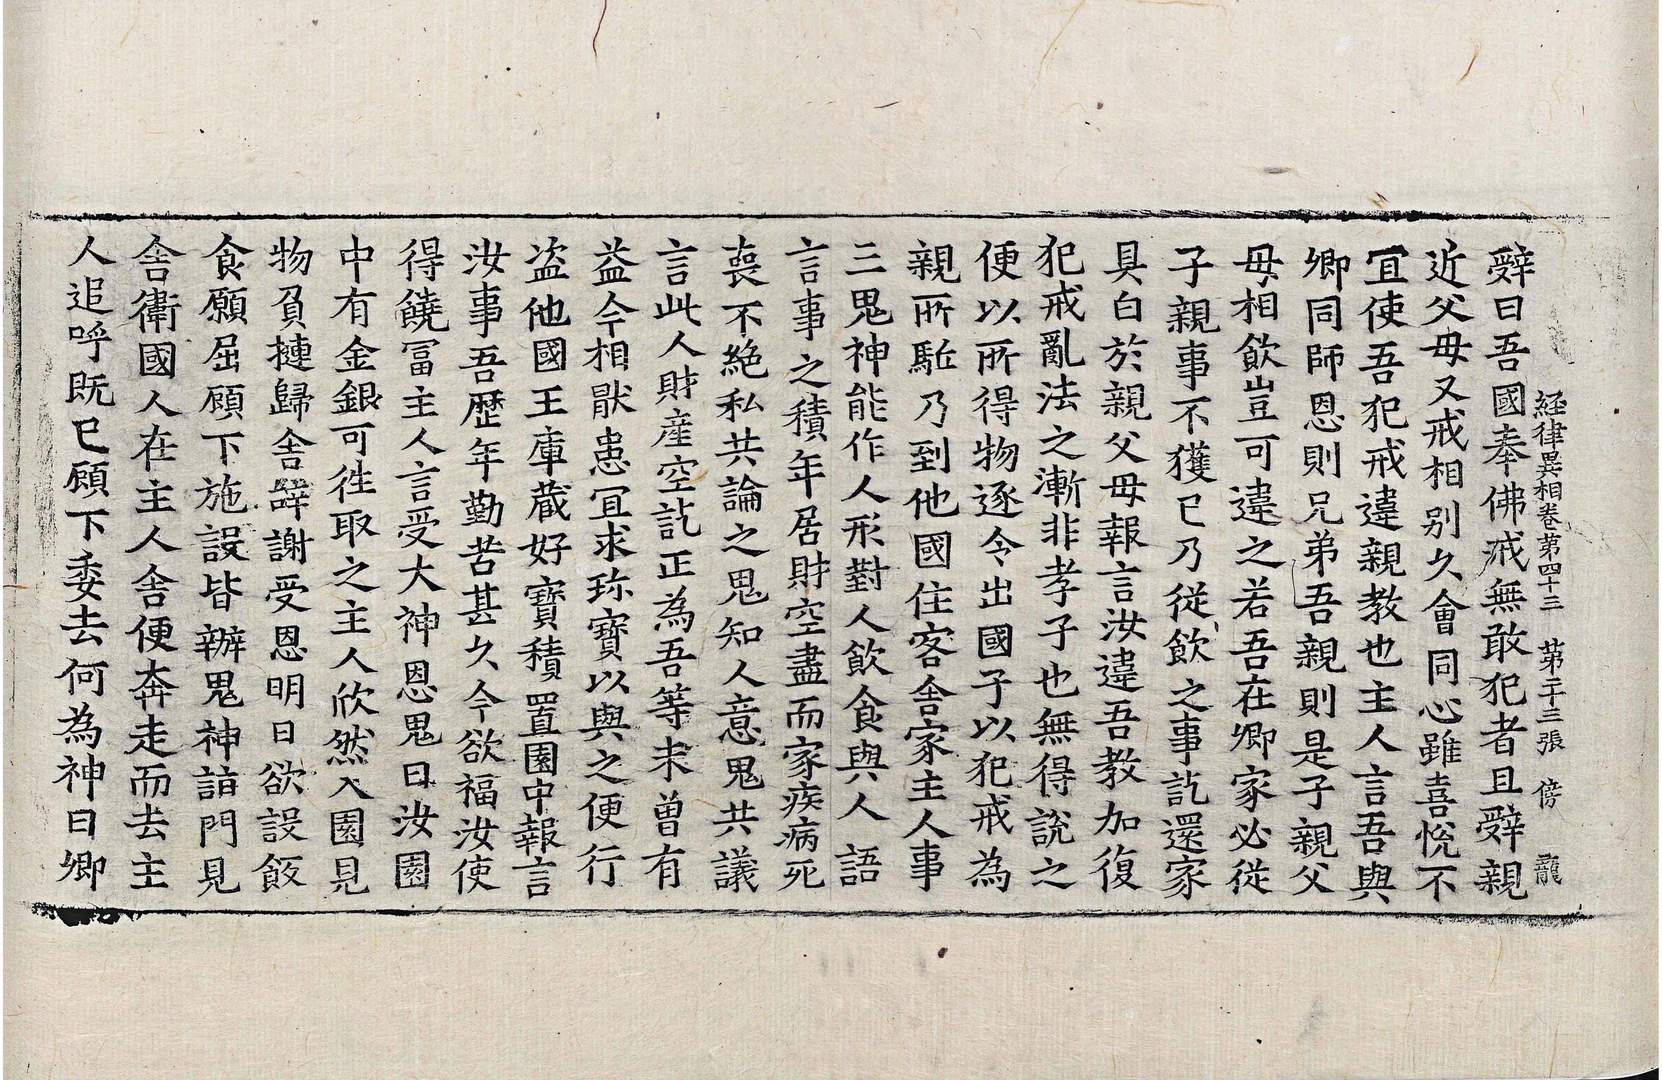 経律異相卷第四十三 第二十三張 傍 龍
辭曰吾國奉佛戒無敢犯者且辭親
近父毋又戒相別久會同心雖喜恱不
冝使吾犯戒違親教也主人言吾與
卿同師恩則兄弟吾親則是子親父
毋相飲豈可違之若吾在卿家必從
子親事不獲已乃從飲之事訖還家
具白於親父毋報言汝違吾教加復
犯戒亂法之漸非孝子也無得說之
便以所得物逐令出國子以犯戒為
親所駈乃到他國住客舎家主人事
三鬼神能作人形對人飲食與人語
言事之積年居財空盡而家疾病死
喪不絶私共論之鬼知人意鬼共議
言此人財産空訖正為吾等未曾有
益今相猒患冝求珎寶以與之便行
盗他國王庫蔵好寶積置園中報言
汝事吾歴年勤苦甚久今欲福汝使
得饒冨主人言受大神恩鬼曰汝園
中有金銀可徃取之主人欣然入園見
物負揵歸舎辭謝受恩明日欲設飯
食願屈顧下施設皆辦鬼神詣門見
舎衛國人在主人舎便奔走而去主
人追呼既已顧下委去何為神曰卿